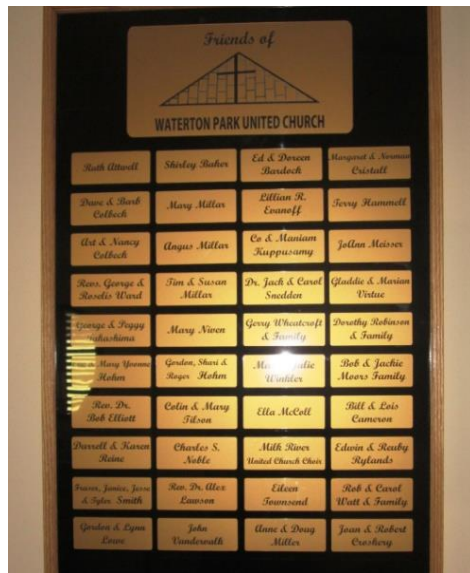 Friends of
WATERTON PARK UNITED CHURCH
Ruth Attwell
Shirley Baker
Ed & Doreen
Bardock
Margaret & Norman
Cristall
Dave & Barb
Colbeck
Mary Millar
Lillian R.
Evanoff
Terry Hammell
Art & Nancy
Colbeck
Angus Millar
Co & Maniam
Kuppusamy
JoAnn Meisser
Revs. George &
Roselis Ward
Tim & Susan
Millar
Dr. Jack & Carol
Snedden
Gladdie & Marian
Virtue
George & Peggy
Mary Niven
Gerry Wheatcroft
& Family
Dorothy Robinson
& Family
Mary Yvonne
Hohm
Gordon, Shari &
Roger Hohm
Winkler
Bob & Jackie
Moors Family
Rev. Dr.
Bob Elliott
Colin & Mary
Tilson
Ella McColl
Bill & Lois
Cameron
Darrell & Karen
Reine
Charles S.
Noble
Milk River
United Church Choir
Edwin & Reuby
Rylands
Janice, Jesse
& Tyler Smith
Rev. Dr. Alex
Lawson
Eileen
Townsend
Rob & Carol
Watt & Family
Gordon & Lynn
Lowe
John
Vandervalk
Anne & Doug
Miller
Joan & Robert
Croskery